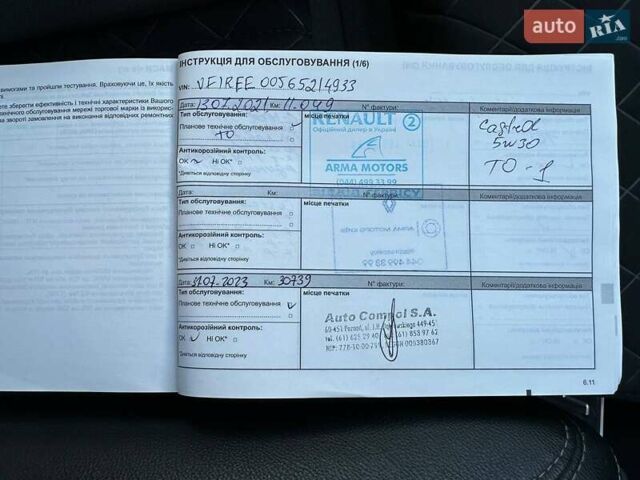 auto RIA.com
ІНСТРУКЦІЯ ДЛЯ ОБСЛУГОВУВАННЯ (1/6)
VIN: VF1RFE00565214933
Дата: 13.07.2021 Км: 11.049 N° фактури: Коментарі/додаткова інформація
Тип обслуговування: місце печатки
Планове технічне обслуговування
ТО
Антикорозійний контроль:
OK Ні OK*
*Дивіться відповідну сторінку
RENAULT 2
Офіційний дилер в Україні
ARMA MOTORS
(044) 499 33 99
Castrol
5W30
ТО-1
Дата: Км: N° фактури: Коментарі/додаткова інформація
Тип обслуговування: місце печатки
Планове технічне обслуговування
Антикорозійний контроль:
OK Ні OK*
*Дивіться відповідну сторінку
Дата: 31.07.2023 Км: 30739 N° фактури: Коментарі/додаткова інформація
Тип обслуговування: місце печатки
Планове технічне обслуговування
Антикорозійний контроль:
OK Ні OK*
*Дивіться відповідну сторінку
Auto Compol S.A.
60-451 Poznań, ul. 449-451
tel. (61) (61) 853 97 62
NIP: 778-10-00-
6.11
вимогами та пройшли тестування. Враховуючи це, їх якість
зберегти ефективність і технічні характеристики Вашого
технічного обслуговування мережі торгової марки із викорис-
на звороті замовлення на виконання відповідних ремонтних